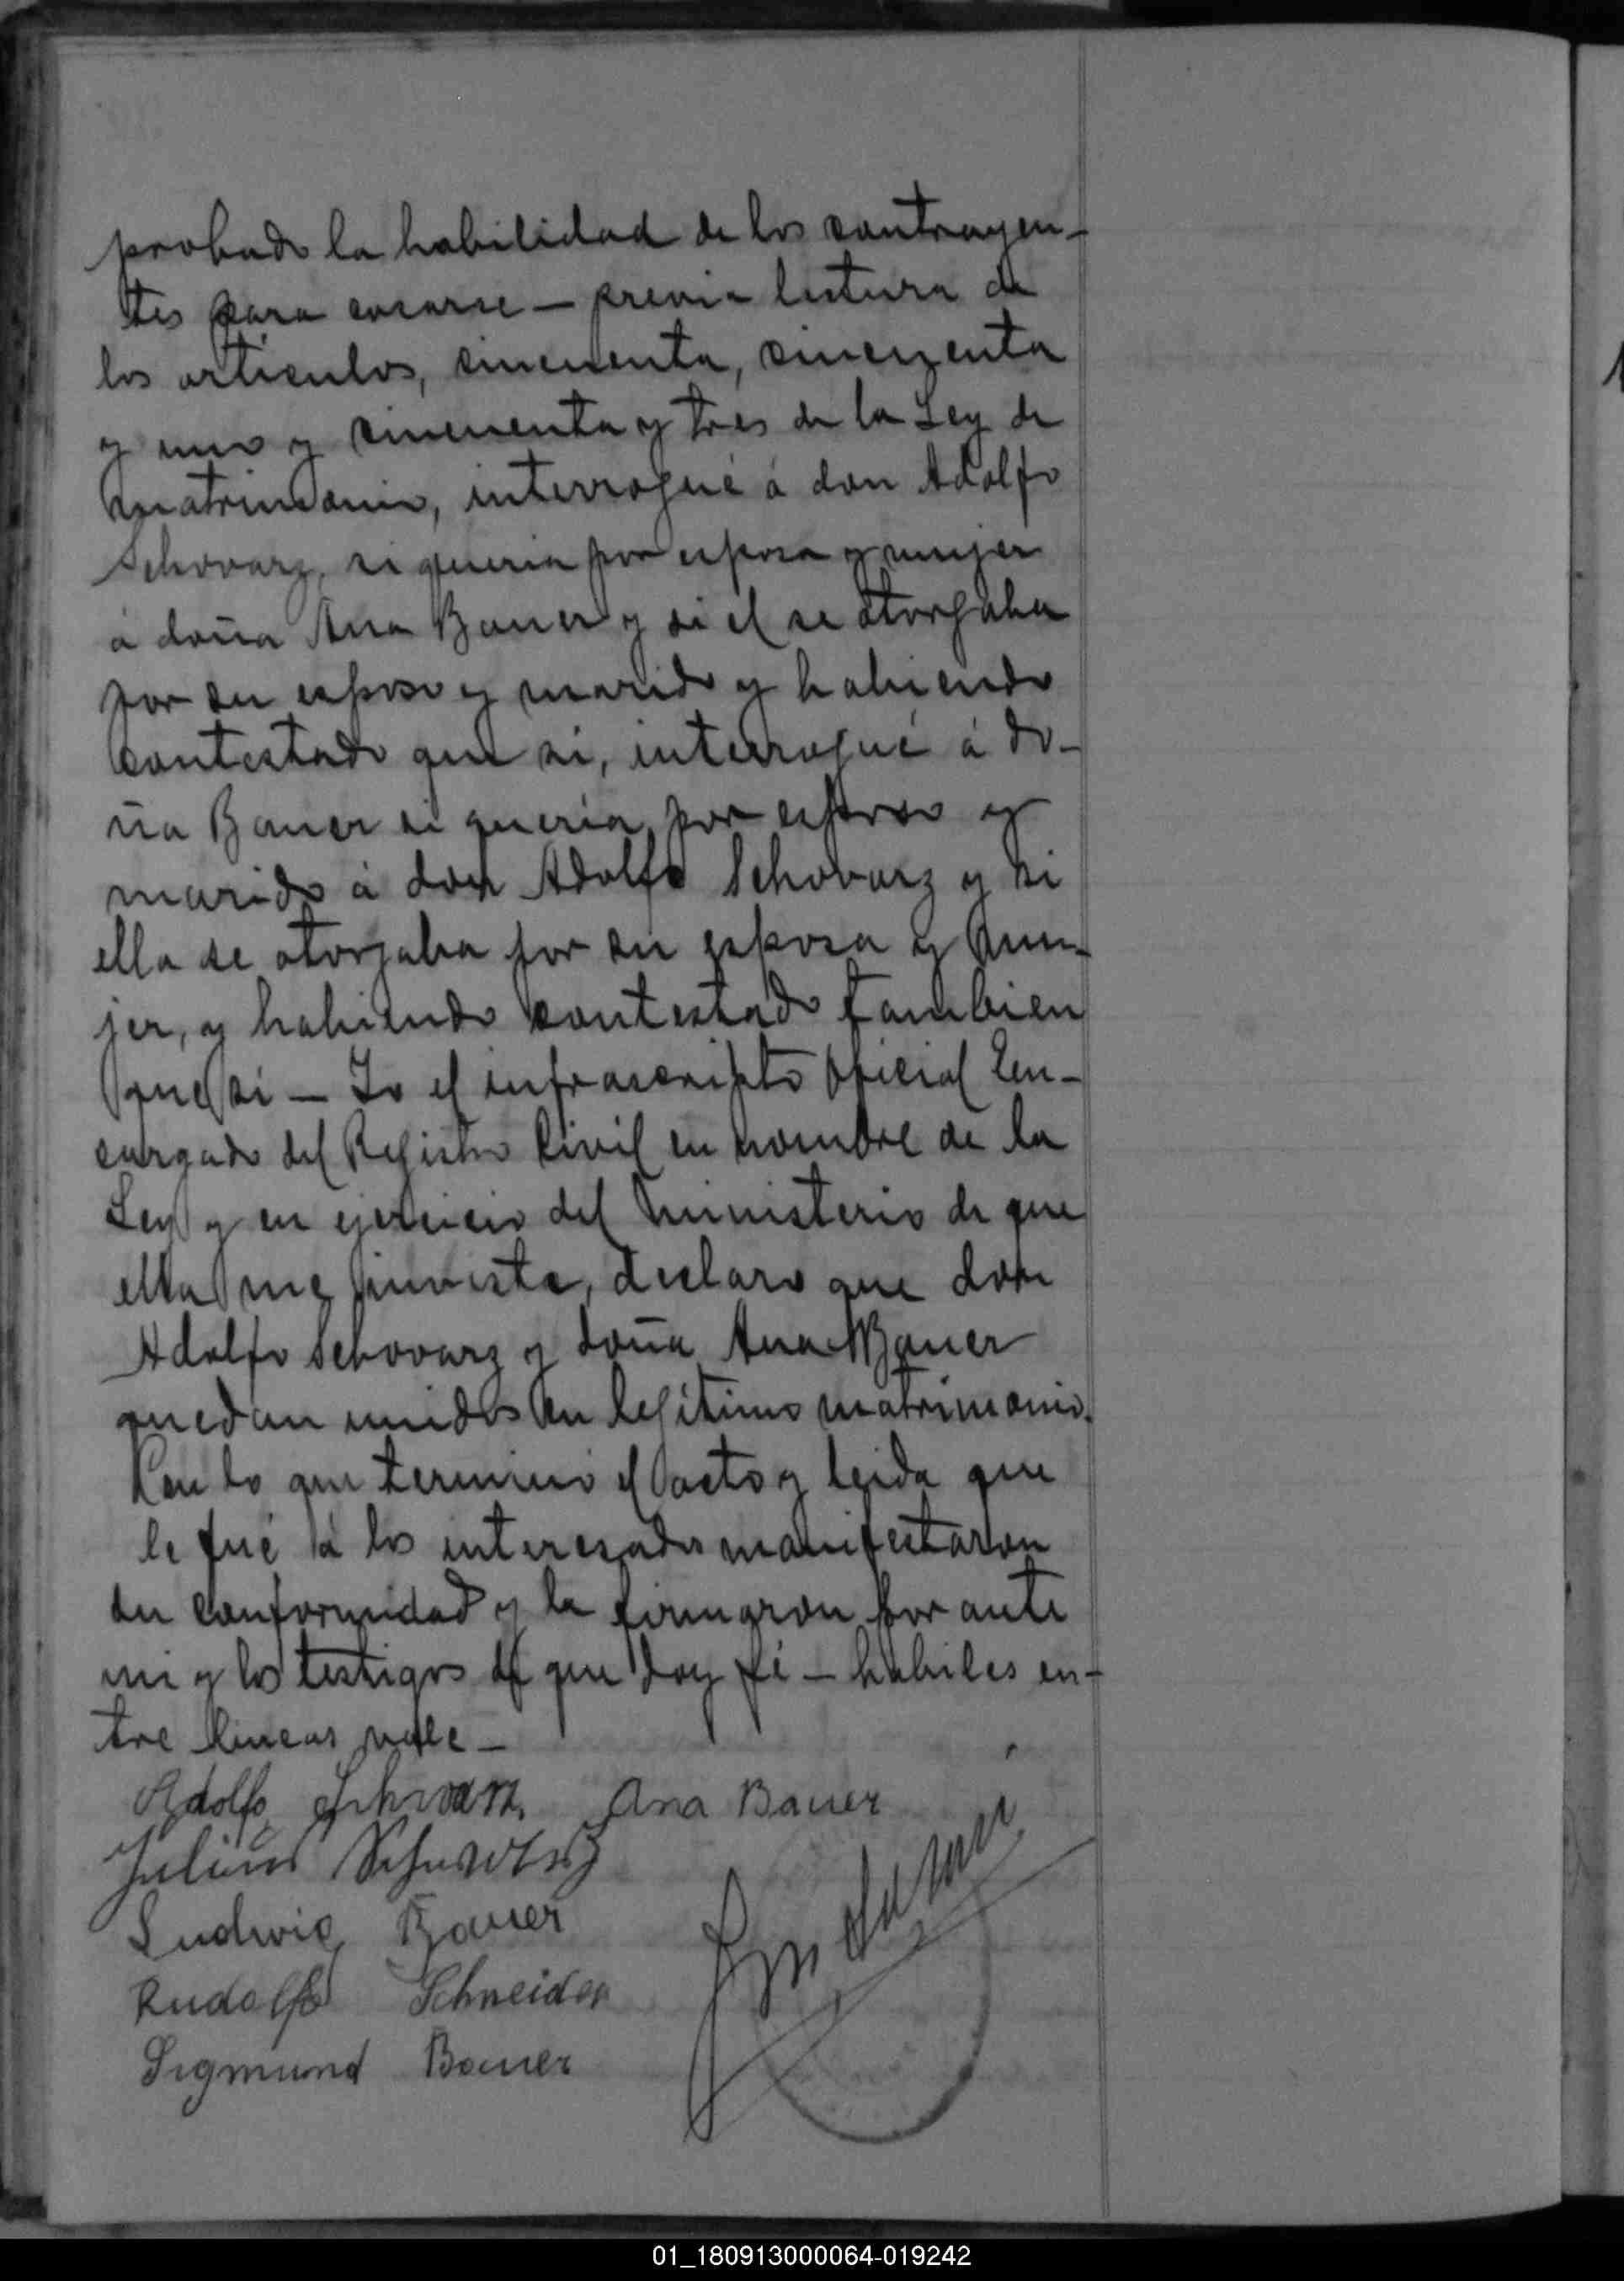 probado la habilidad de los contrayen-
tes para casarse — previa lectura de
los artículos, cincuenta, cincuenta
y uno y cincuenta y tres de la Ley de
matrimonio, interrogué á don Adolfo
Schovarz, si queria por esposa y mujer
á doña Ana Bauer y si el se otorgaba
por su esposo y marido y habiendo
contestado que si, interrogué á do-
ña Bauer si queria por esposo y
marido á don Adolfo Schovarz y si
ella se otorgaba por su esposa y mu-
jer, y habiendo contestado tambien
que si — Yo el infrascripto Oficial En-
cargado del Registro Civil en nombre de la
Ley y en ejercicio del ministerio de que
ella me inviste, declaro que don
Adolfo Schovarz y doña Ana Bauer
quedan unidos en legítimo matrimonio.
Con lo que terminó el acto y leida que
le fué á los interesados manifestaron
su conformidad y la firmaron por ante
mi y los testigos de que doy fé — habiles en-
tre lineas vale —
Adolfo Schwarz. Ana Bauer
Julius
Ludwig Bauer
Rudolfo Schneider
Sigmund Bauer
01_180913000064-019242